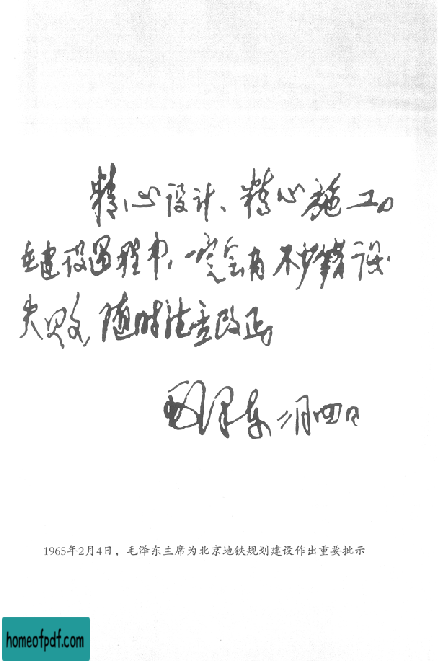 精心设计、精心施工。
在建设过程中，一定会有不少错误
失败，随时注意改正。
毛泽东 二月四日
1965年2月4日，毛泽东主席为北京地铁规划建设作出重要批示
homeofpdf.com